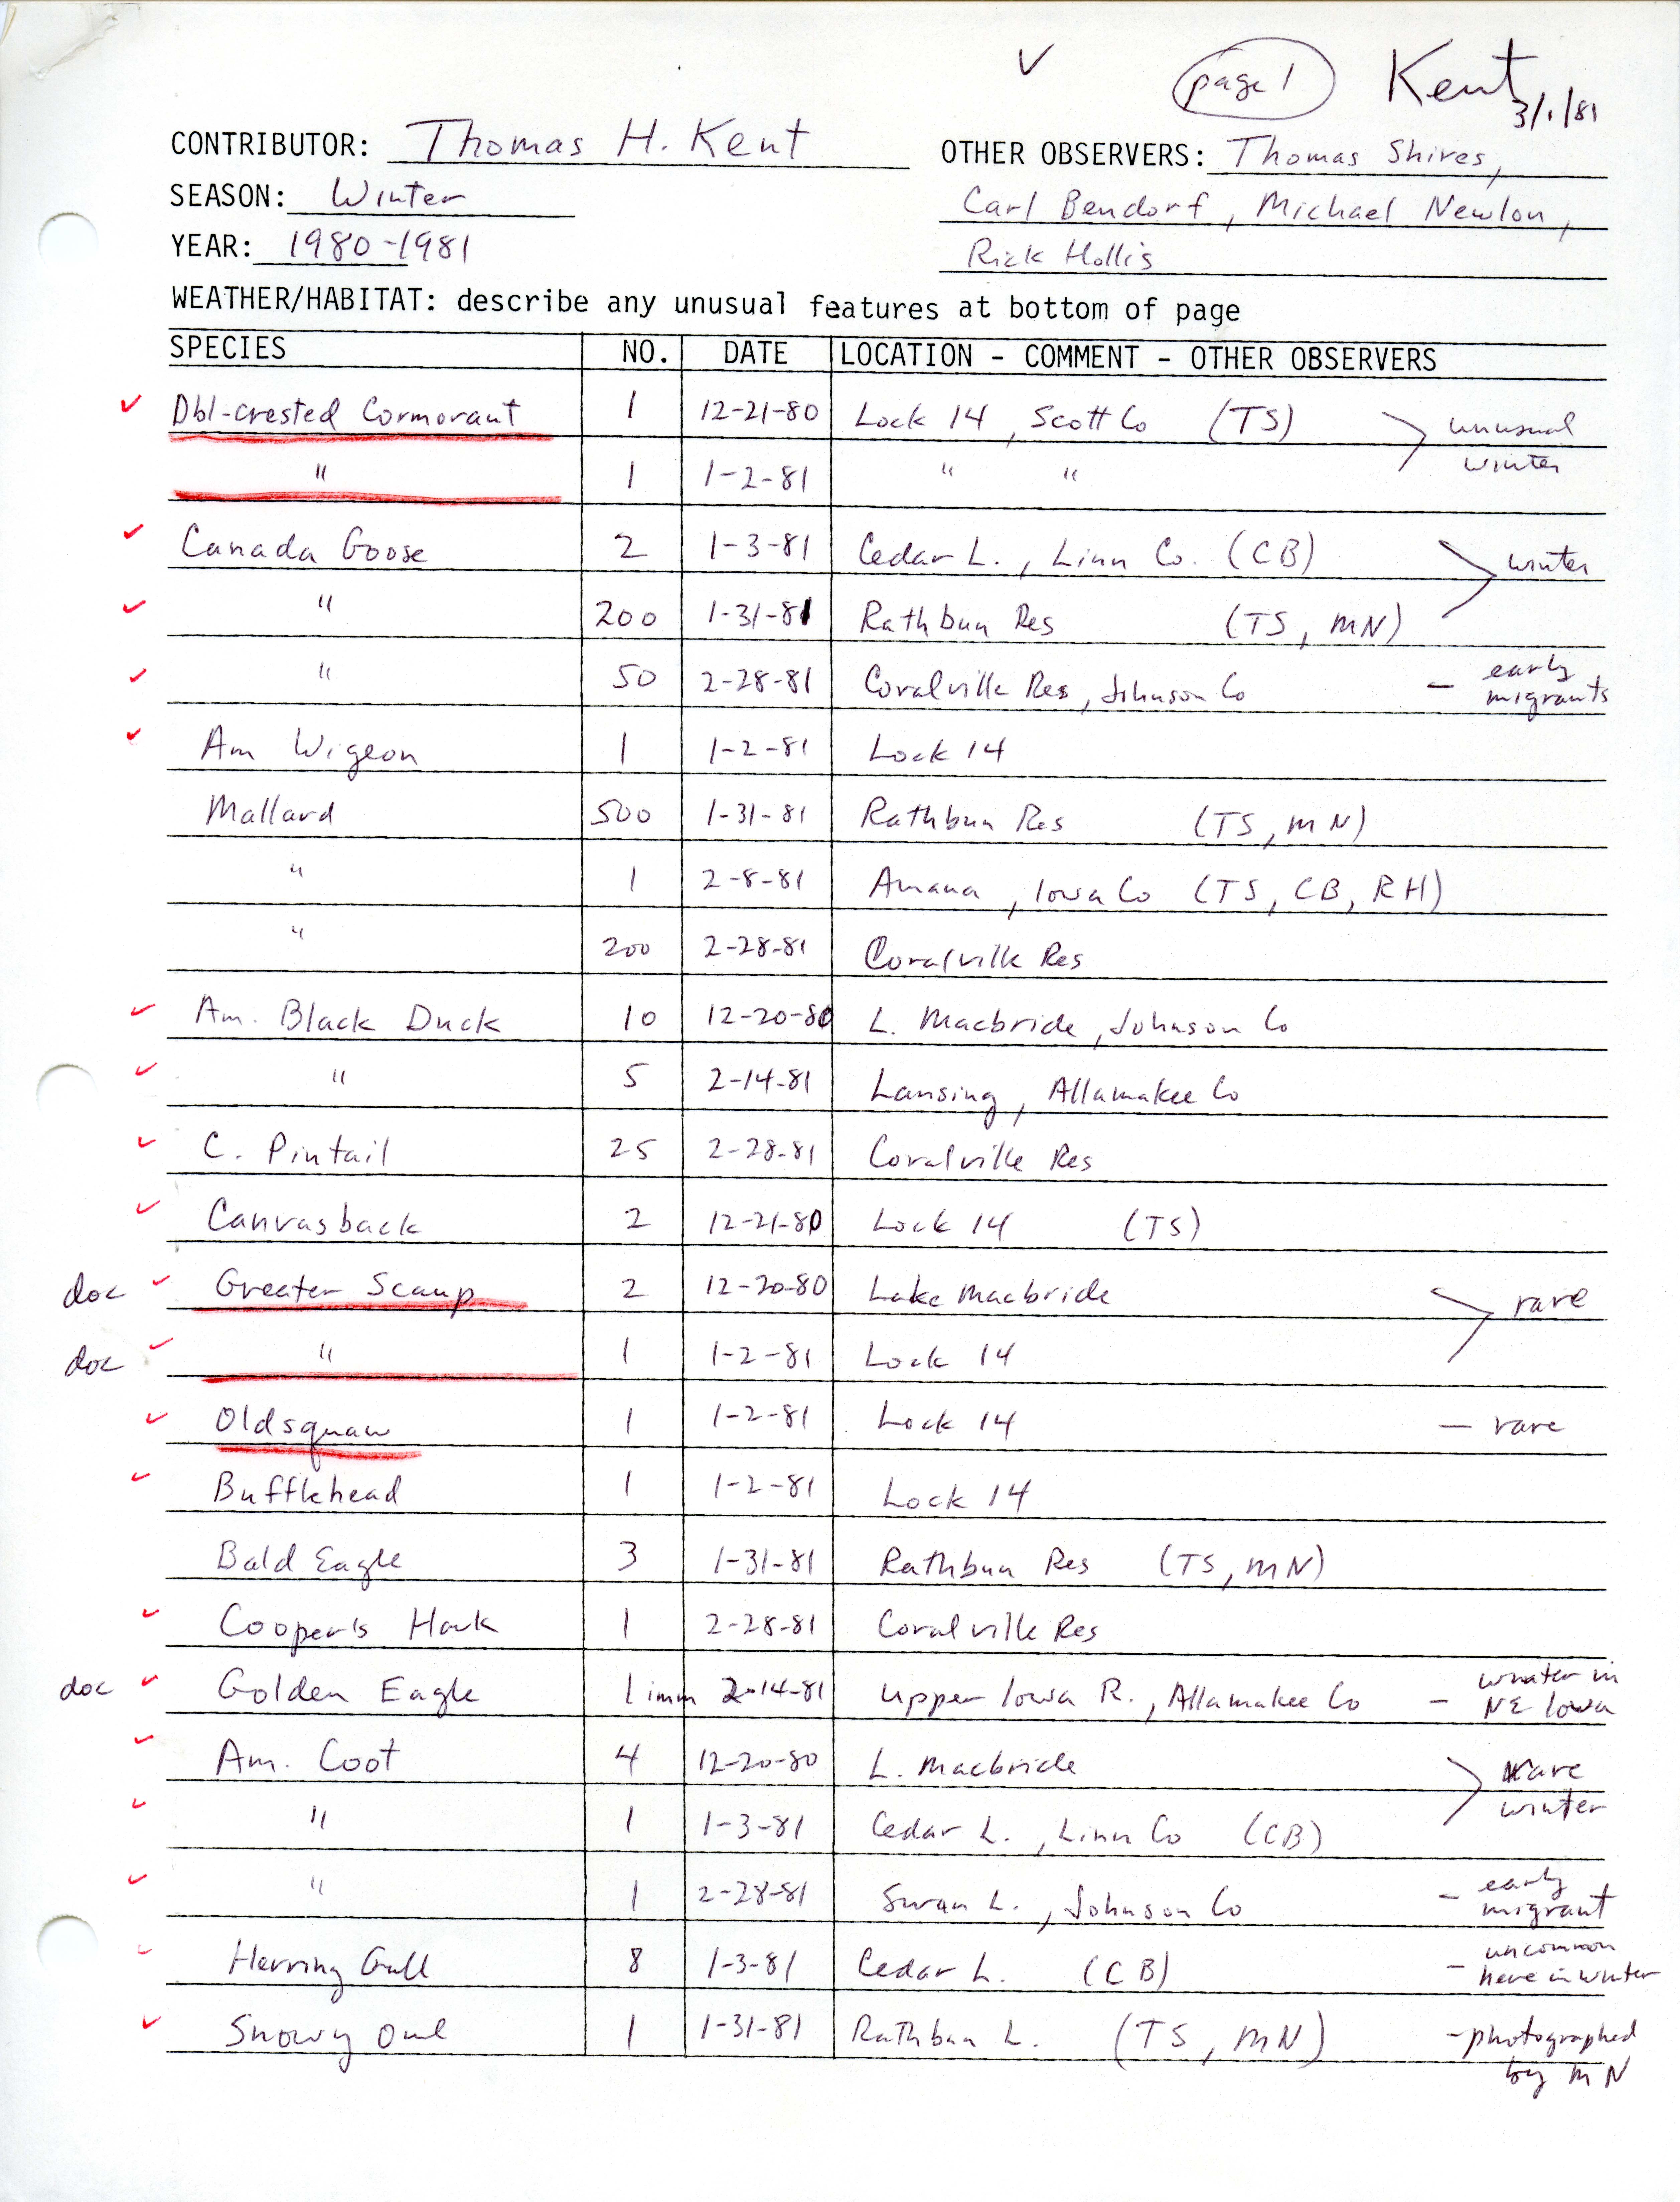 ✓ page 1 Kent
3/1/81
CONTRIBUTOR: Thomas H. Kent OTHER OBSERVERS: Thomas Shires,
SEASON: Winter Carl Bendorf, Michael Newlon,
YEAR: 1980-1981 Rick Hollis
WEATHER/HABITAT: describe any unusual features at bottom of page
SPECIES NO. DATE LOCATION - COMMENT - OTHER OBSERVERS
✓ Dbl-crested Cormorant 1 12-21-80 Lock 14, Scott Co (TS) unusual
" 1 1-2-81 " " winter
✓ Canada Goose 2 1-3-81 Cedar L., Linn Co. (CB) winter
✓ " 200 1-31-81 Rathbun Res (TS, MN)
✓ " 50 2-28-81 Coralville Res, Johnson Co - early migrants
✓ Am Wigeon 1 1-2-81 Lock 14
Mallard 500 1-31-81 Rathbun Res (TS, MN)
" 1 2-8-81 Amana, Iowa Co (TS, CB, RH)
" 200 2-28-81 Coralville Res
✓ Am. Black Duck 10 12-20-80 L. Macbride, Johnson Co
✓ " 5 2-14-81 Lansing, Allamakee Co
✓ C. Pintail 25 2-28-81 Coralville Res
✓ Canvasback 2 12-21-80 Lock 14 (TS)
doc ✓ Greater Scaup 2 12-20-80 Lake Macbride rare
doc ✓ " 1 1-2-81 Lock 14
✓ Oldsquaw 1 1-2-81 Lock 14 - rare
✓ Bufflehead 1 1-2-81 Lock 14
Bald Eagle 3 1-31-81 Rathbun Res (TS, MN)
✓ Cooper's Hawk 1 2-28-81 Coralville Res
doc ✓ Golden Eagle 1 imm 2-14-81 Upper Iowa R., Allamakee Co - winter in NE Iowa
✓ Am. Coot 4 12-20-80 L. Macbride rare
✓ " 1 1-3-81 Cedar L., Linn Co (CB) winter
✓ " 1 2-28-81 Swan L., Johnson Co - early migrant
✓ Herring Gull 8 1-3-81 Cedar L. (CB) - uncommon here in winter
✓ Snowy Owl 1 1-31-81 Rathbun L. (TS, MN) - photographed
by MN